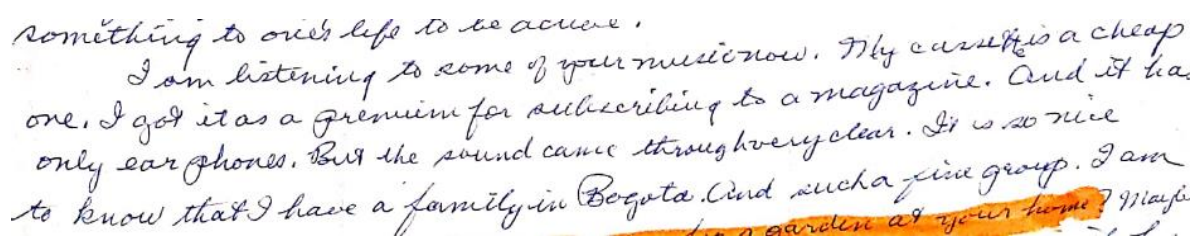 something to one's life to be active.
I am listening to some of your music now. My cassette is a cheap
one. I got it as a premium for subscribing to a magazine. And it has
only ear phones. But the sound came through very clear. It is so nice
to know that I have a family in Bogota. And such a fine group. I am
a garden at your home? Maybe